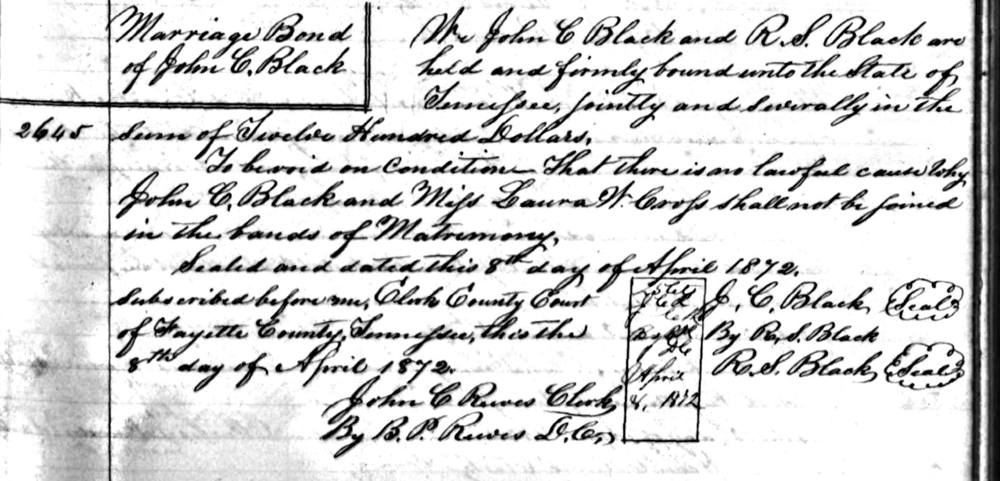 Marriage Bond
of John C. Black
We John C Black and R. S. Black are
held and firmly bound unto the State of
Tennessee, jointly and severally in the
2645
sum of Twelve Hundred Dollars.
To be void on condition That there is no lawful cause why
John C. Black and Miss Laura W. Cross shall not be joined
in the bands of Matremony.
Sealed and dated this 8th day of April 1872.
Subscribed before me, Clerk County Court
of Fayette County, Tennessee, this the
8th day of April 1872.
John C Reeves Clerk
By B. P. Reeves D.C.
April
8, 1872
J. C. Black Seal
By R. S. Black
R. S. Black Seal